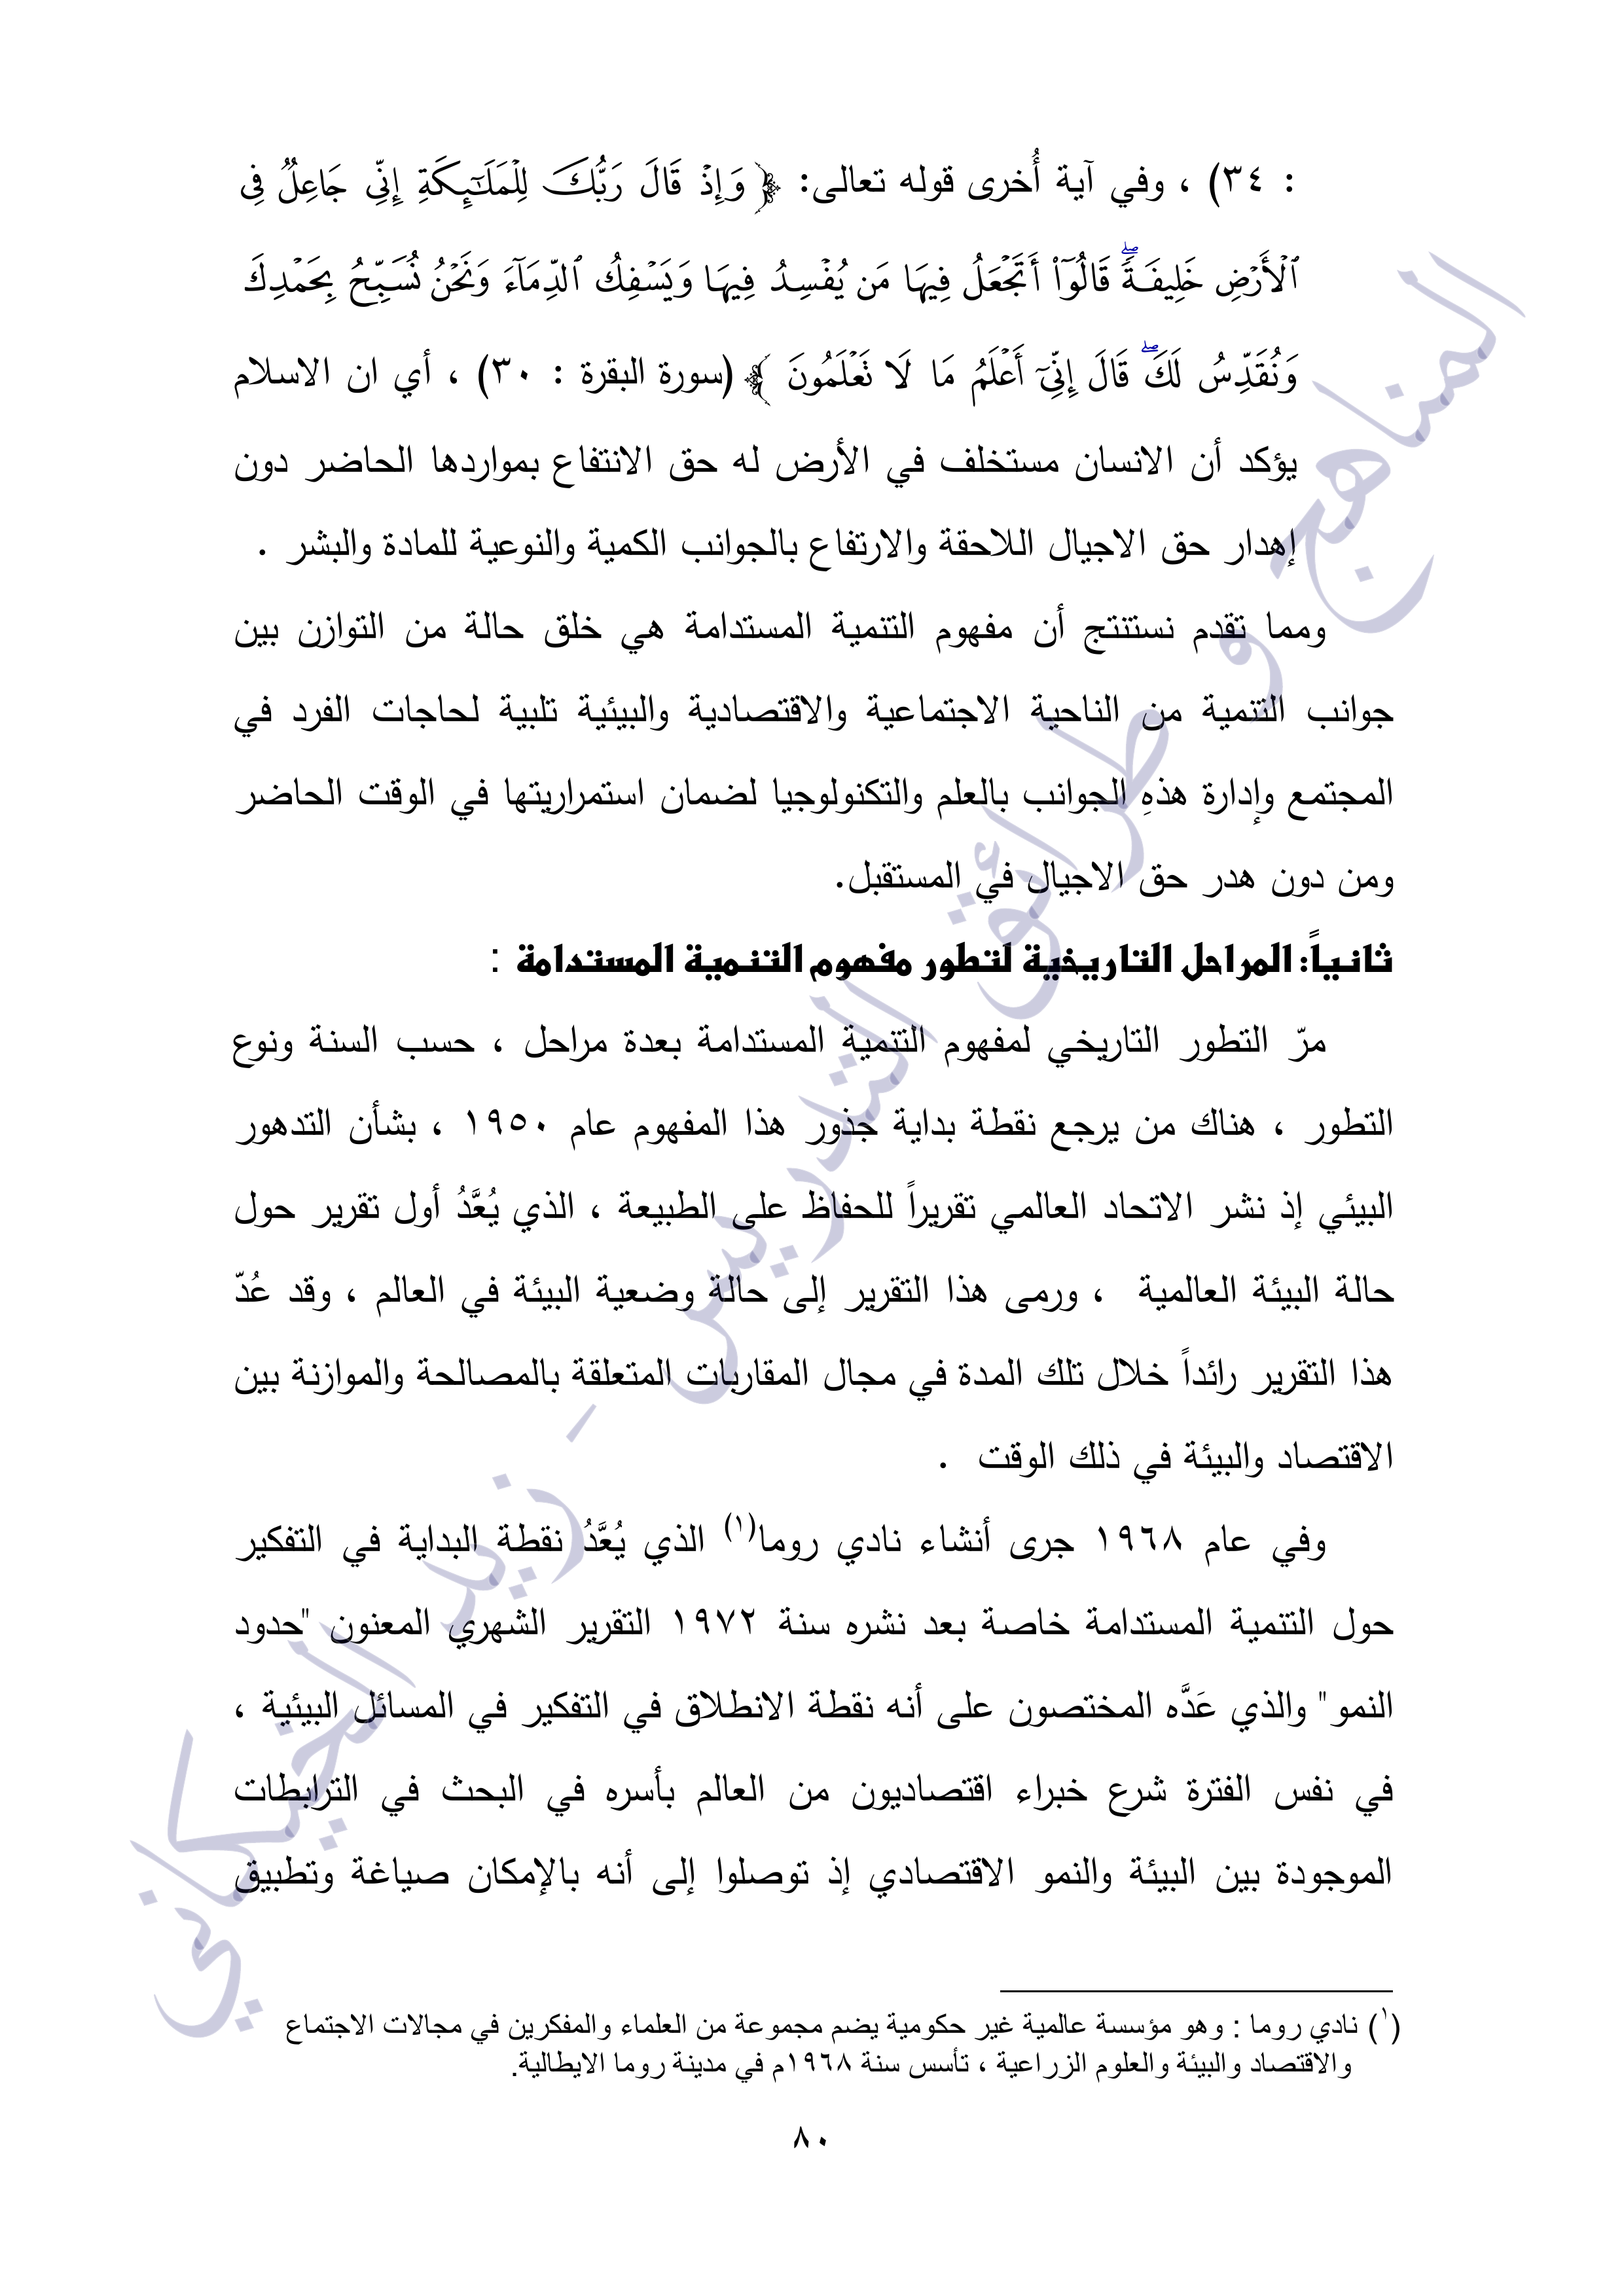 : ٣٤) ، وفي آية أُخرى قوله تعالى: ﴿ وَإِذْ قَالَ رَبُّكَ لِلْمَلَٰٓئِكَةِ إِنِّى جَاعِلٌ فِى
ٱلْأَرْضِ خَلِيفَةً ۖ قَالُوٓا۟ أَتَجْعَلُ فِيهَا مَن يُفْسِدُ فِيهَا وَيَسْفِكُ ٱلدِّمَآءَ وَنَحْنُ نُسَبِّحُ بِحَمْدِكَ
وَنُقَدِّسُ لَكَ ۖ قَالَ إِنِّىٓ أَعْلَمُ مَا لَا تَعْلَمُونَ ﴾ (سورة البقرة : ٣٠) ، أي ان الاسلام
يؤكد أن الانسان مستخلف في الأرض له حق الانتفاع بمواردها الحاضر دون
إهدار حق الاجيال اللاحقة والارتفاع بالجوانب الكمية والنوعية للمادة والبشر .
ومما تقدم نستنتج أن مفهوم التنمية المستدامة هي خلق حالة من التوازن بين
جوانب التنمية من الناحية الاجتماعية والاقتصادية والبيئية تلبية لحاجات الفرد في
المجتمع وإدارة هذهِ الجوانب بالعلم والتكنولوجيا لضمان استمراريتها في الوقت الحاضر
ومن دون هدر حق الاجيال في المستقبل.
ثانياً: المراحل التاريخية لتطور مفهوم التنمية المستدامة :
مرّ التطور التاريخي لمفهوم التنمية المستدامة بعدة مراحل ، حسب السنة ونوع
التطور ، هناك من يرجع نقطة بداية جذور هذا المفهوم عام ١٩٥٠ ، بشأن التدهور
البيئي إذ نشر الاتحاد العالمي تقريراً للحفاظ على الطبيعة ، الذي يُعَّدُ أول تقرير حول
حالة البيئة العالمية ، ورمى هذا التقرير إلى حالة وضعية البيئة في العالم ، وقد عُدّ
هذا التقرير رائداً خلال تلك المدة في مجال المقاربات المتعلقة بالمصالحة والموازنة بين
الاقتصاد والبيئة في ذلك الوقت .
وفي عام ١٩٦٨ جرى أنشاء نادي روما(١) الذي يُعَّدُ نقطة البداية في التفكير
حول التنمية المستدامة خاصة بعد نشره سنة ١٩٧٢ التقرير الشهري المعنون "حدود
النمو" والذي عَدَّه المختصون على أنه نقطة الانطلاق في التفكير في المسائل البيئية ،
في نفس الفترة شرع خبراء اقتصاديون من العالم بأسره في البحث في الترابطات
الموجودة بين البيئة والنمو الاقتصادي إذ توصلوا إلى أنه بالإمكان صياغة وتطبيق
(١) نادي روما : وهو مؤسسة عالمية غير حكومية يضم مجموعة من العلماء والمفكرين في مجالات الاجتماع
والاقتصاد والبيئة والعلوم الزراعية ، تأسس سنة ١٩٦٨م في مدينة روما الايطالية.
٨٠
المناهج و طرائق التدريس - زيد الخيكاني